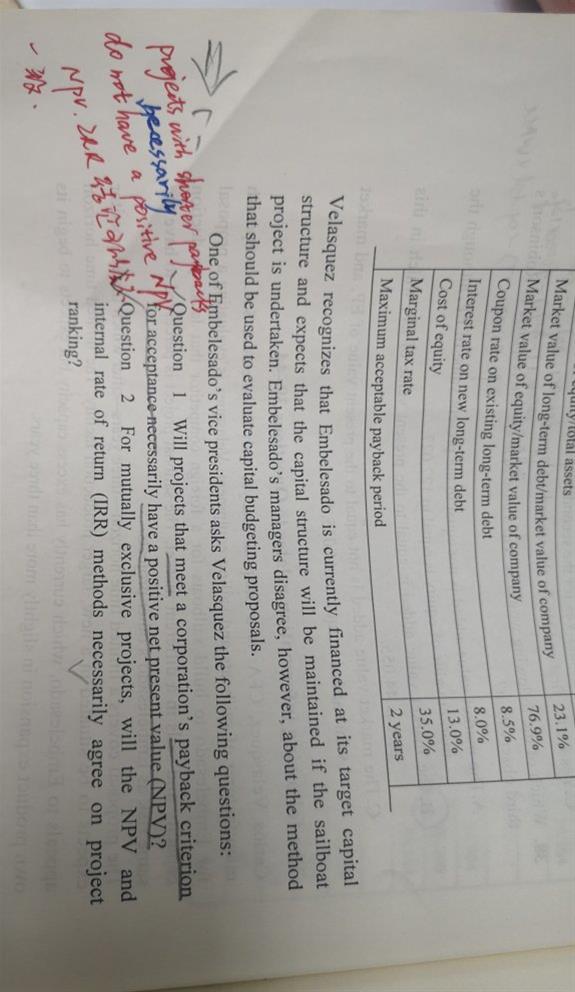 equity/total assets
Market value of long-term debt/market value of company 23.1%
Market value of equity/market value of company 76.9%
Coupon rate on existing long-term debt 8.5%
Interest rate on new long-term debt 8.0%
Cost of equity 13.0%
Marginal tax rate 35.0%
Maximum acceptable payback period 2 years
Velasquez recognizes that Embelesado is currently financed at its target capital
structure and expects that the capital structure will be maintained if the sailboat
project is undertaken. Embelesado's managers disagree, however, about the method
that should be used to evaluate capital budgeting proposals.
One of Embelesado's vice presidents asks Velasquez the following questions:
Question 1 Will projects that meet a corporation's payback criterion
for acceptance necessarily have a positive net present value (NPV)?
Question 2 For mutually exclusive projects, will the NPV and
internal rate of return (IRR) methods necessarily agree on project
ranking?
projects with shorter paybacks
necessarily
do not have a positive NPV
NPV. IRR